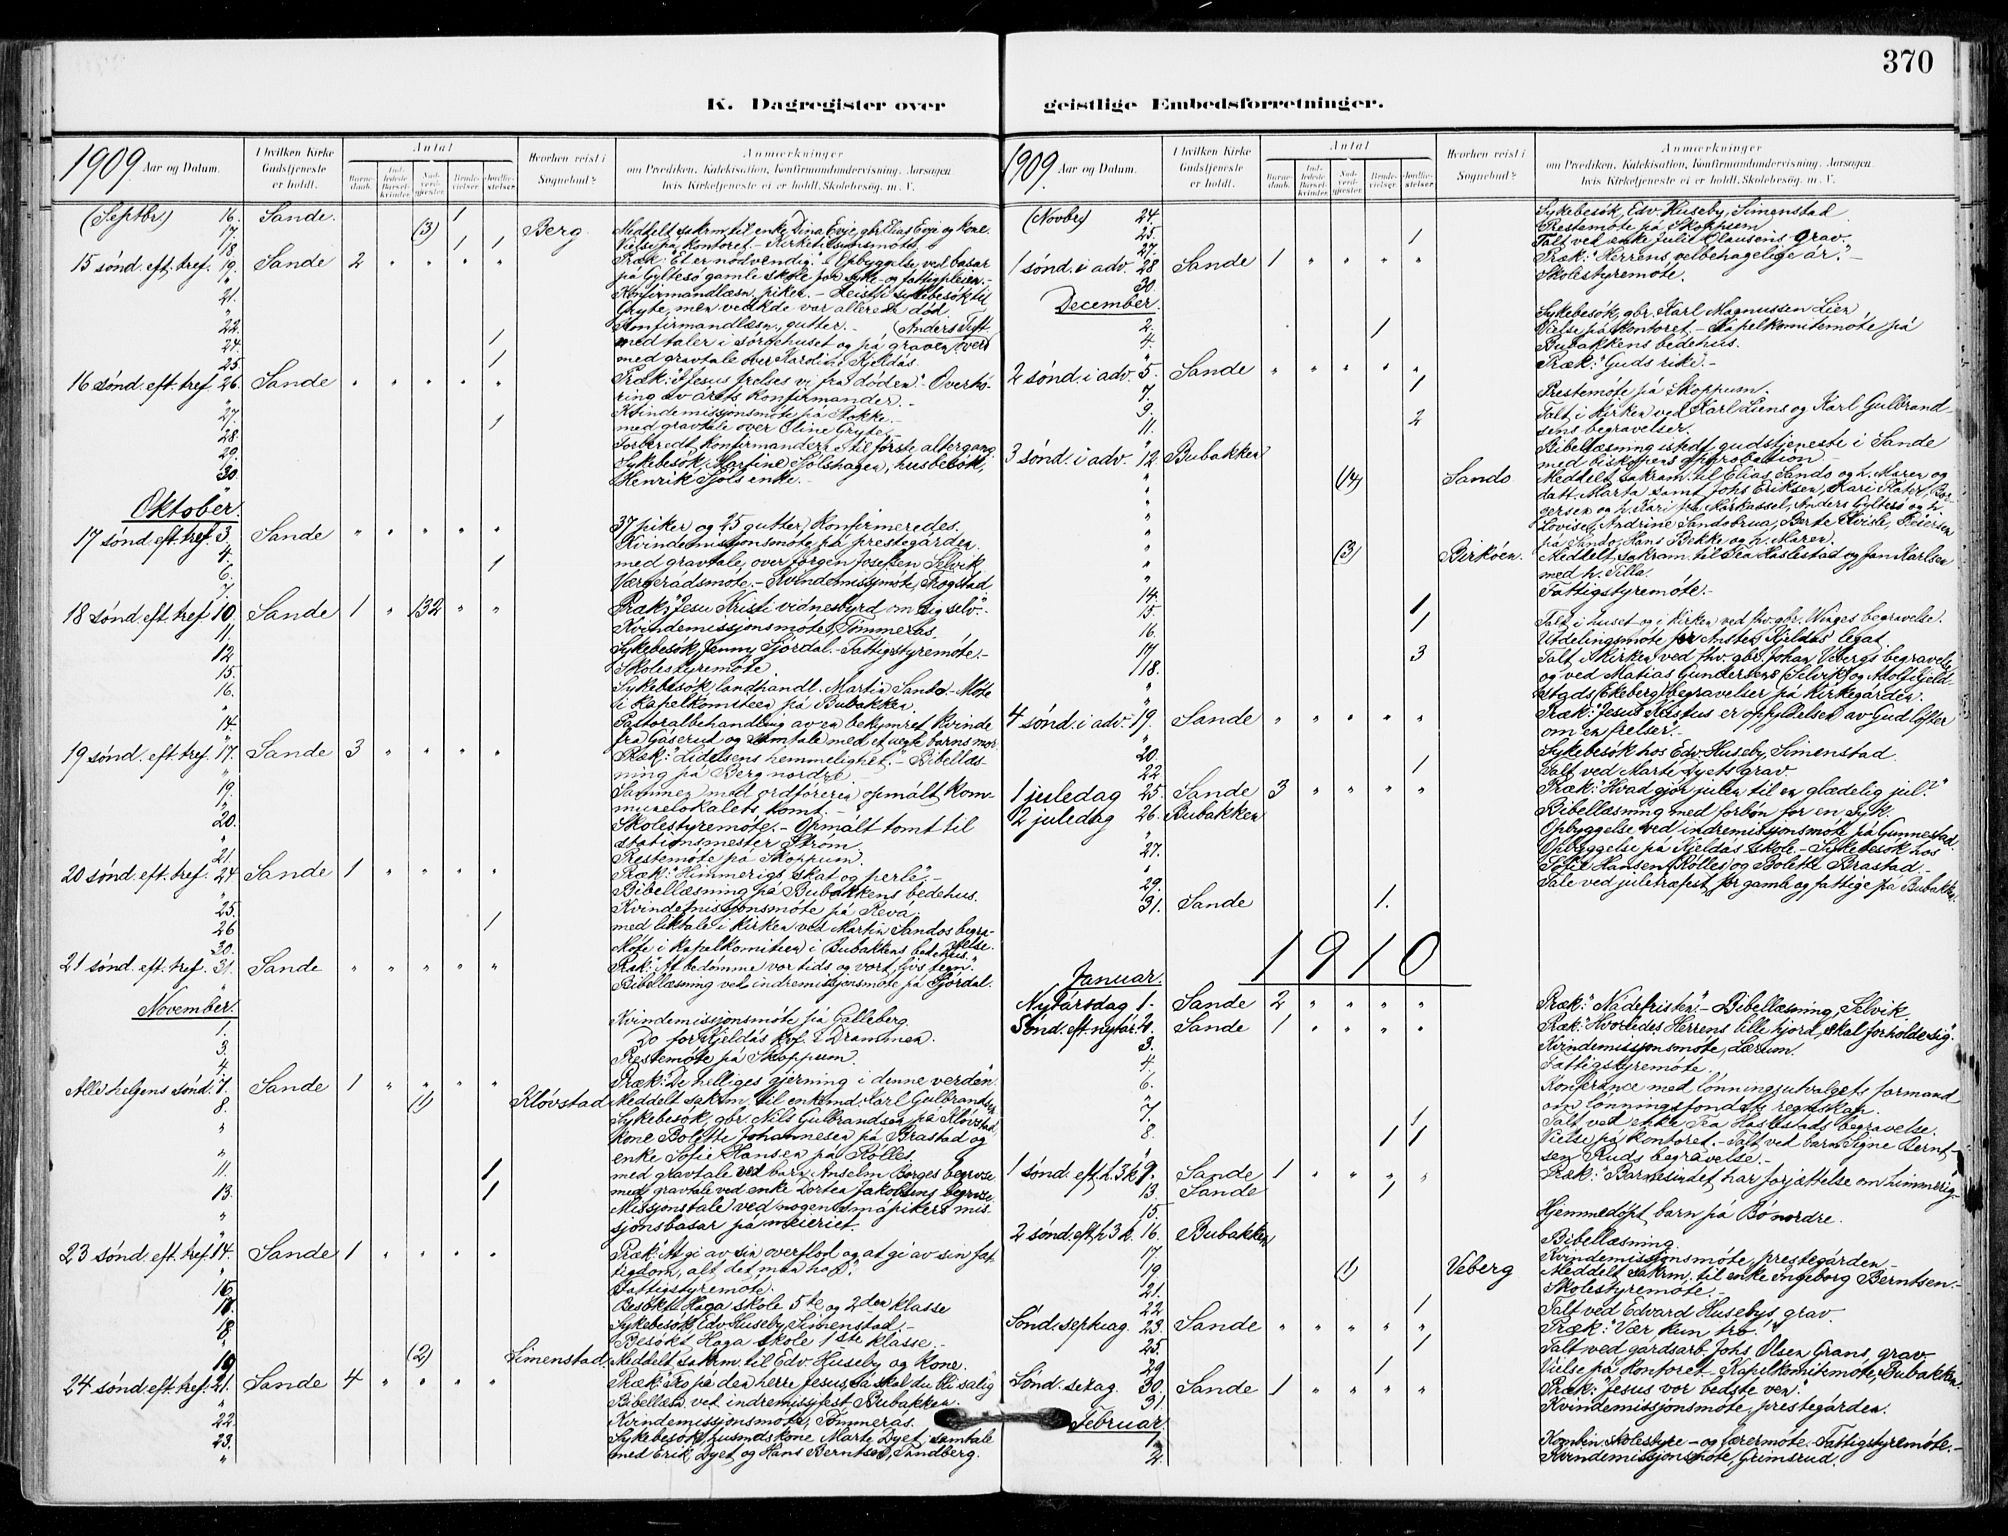 370
K. Dagregister over geistlige Embedsforretninger.
1909 Aar og Datum.
I hvilken Kirke Gudstjeneste er holdt.
Antal
Barnedaab.
Indledede Barselkvinder.
Nadverdgjester.
Brudevielser.
Jordfæstelser.
Hvorhen reist i Sognebud?
Anmærkninger
om Prædiken, Katekisation, Konfirmandundervisning, Aarsagen, hvis Kirketjeneste ei er holdt, Skolebesøg, m. V.
(Septbr.) 16. Sande. 1
17. (3) Berg. Meddelt sakrm. til enke Dina Evje, gbr. Elias Evje og kone.
18. 1 1 Vielse på kontoret. - Kirketilsynsmøte.
15 sønd. eft. tref. 19. Sande 2 " " " " Præk: "Et er nødvendig." Opbyggelse ved basar
" på Gyltesø gamle skole for syke- og fattigpleien. -
21. Konfirmandlæsn. piker. - Reiste sykebesøk til
" Gryte, men vedkde var allerede død.
22. Konfirmandlæsn., gutter. - (Anders Tuft.
24. 1 med taler i sørgehuset og på graven over
25. 1 med gravtale over Karoline Kjeldås.
16 sønd. eft. tref. 26. Sande " " " " " Præk: "I Jesus frelses vi fra døden." - Overhø-
" ring av årets konfirmander. -
27. Kvindemissjonsmøte på Bakke.
" 1 med gravtale over Oline Gryte.
28. Forberedt konfirmanderne til første altergang.
29. Sykebesøk, Martine Sjølshagen, husbesøk,
30. Henrik Sjøls enke. -
Oktober.
17 sønd. eft. tref. 3. Sande " " " " " 37 piker og 25 gutter konfirmeredes.
4. Kvindemissjonsmøte på prestegården.
" 1 med gravtale over Jørgen Josefsen Selvik.
6. Værgerådsmøte. - Kvindemissjmøt, Frogstad.
7.
18 sønd. eft. tref. 10. Sande 1 " 132 " " Præk: "Jesu Kristi vidnesbyrd om sig selv." -
11. Kvindemissjonsmøte, Tømmerås.
12. Sykebesøk, Jenny Fjordal. - Fattigstyremøte. -
15. Skolestyremøte.
16. Sykebesøk, landhandl. Martin Sando. - Møte
" i kapelkomiteen på Bubakken.
14. Pastoralbehandling av en bekymret kvinde
" fra Gåserud og samtale med et uegte barns mor.
19 sønd. eft. tref. 17. Sande 3 " " " " Præk: "Lidelsens hemmelighet." - Bibellæs-
" ning på Berg nordre.
19. Sammen med ordføreren opmålt kom-
" munelokalets tomt. -
20. Skolestyremøte. - Opmålt tomt til
" stationsmester Strøm.
21. Prestemøte på Skoppum.
20 sønd. eft. tref. 24. Sande 1 " " " " Præk: "Himmerigs skat og perle". -
" Bibellæsning på Bubakkens bedehus.
25. Kvindemissjonsmøte på Reva.
26. 1 med liktale i kirken ved Martin Sandos begra-
30. Møte i kapelkomiteen i Bubakkens bedehus. velse.
21 sønd. eft. tref. 31. Sande " " " " " Præk: "At bedømme vor tids og vort livs tegn."
" Bibellæsning ved indremissjonsmøte på Fjordal.
November.
1. Kvindemissjonsmøte på Galleberg.
3. Do for Kjeldås krf. i Drammen.
4. Prestemøte på Skoppum.
Alle helgens sønd. 7. Sande 1 " " " " Præk: "De helliges gjerning i denne verden".
8. (1) Kløvstad Meddelt sakrm. til enkemd. Karl Gulbrandsen.
" Sykebesøk, gbr. Nils Gulbrandsen på Kløvstad,
" kone Bolette Johannesen på Brastad og
" enke Sofie Hansen på Rølles.
11. 1 med gravtale ved barn Anselm Borges begravse
13. 1 med gravtale ved enke Dorten Jakobsens begravse.
" Missjonstale ved nogen småpikers mis-
" sjonsbasar på meieriet.
23 sønd. eft. tref. 14. Sande 1 " " " " Præk: "At gi av sin overflod og at gi av sin fat-
" tigdom, alt det man har".
16. Fattigstyremøte.
17. Besøkt Haga skole 5te og 2den klasse
18. Sykebesøk, Edv. Huseby, Simenstad. -
" Besøkt Haga skole 1ste klasse. -
19. (2) Simenstad. Meddelt sakrm. til Edv. Huseby og kone.
24 sønd. eft. tref. 21. Sande 4 " " " " Præk: "Tro på den herre Jesus, så skal du bli salig"
" Bibellæsn. ved indremissjfest Bubakken.
22. Kvindemissjonsmøte, Tømmerås.
23. Sykebesøk, husmdskone Marte Dyet; samtale
" med Erik Dyet og Hans Berntsen, Sandberg.
1909. Aar og Datum.
I hvilken Kirke Gudstjeneste er holdt.
Antal
Barnedaab.
Indledede Barselkvinder.
Nadverdgjester.
Brudevielser.
Jordfæstelser.
Hvorhen reist i Sognebud?
Anmærkninger
om Prædiken, Katekisation, Konfirmandundervisning, Aarsagen, hvis Kirketjeneste ei er holdt, Skolebesøg, m. V.
(Novbr.) 24. Sykebesøk, Edv. Huseby, Simenstad.
25. Prestemøte på Skoppum.
27. 1 Talt ved enke Julie Clausens grav.
1 sønd. i adv. 28. Sande 1 " " " " Præk: "Herrens velbehagelige år." -
30. Skolestyremøte.
December.
2. Sykebesøk, gbr. Karl Magnussen Lien
4. 1 Vielse på kontoret. - Kapelkomitemøte på
" Bubakkens bedehus.
2 sønd. i adv. 5. Sande " " " " " Præk: "Guds rike." -
7. 1
9. Prestemøte på Skoppum.
11. 2 Talt i kirken ved Karl Liens og Karl Gulbrand-
" sens begravelser.
3 sønd. i adv. 12. Bubakken Bibellæsning istedf. gudstjeneste i Sande
" med biskopens approbation. -
" (14) Sando Meddelt sakram. til Elias Sando og h. Maren og
" datt. Marta samt Johs Eriksen, Kari Plater, Bor-
" gersen og h. Kari fra Karkassel, Anders Gyltesø og h.
" Lovise, Andrine Sandobrua, Berte Kvisle, Peiersen
" på Sando, Hans Bakke og h. Maren.
" (3) Birkøen. Meddelt sakram. til Tea Haslestad og Jan Karlsen
" med h. Tilla.
14. Fattigstyremøte. -
15. 1 Talt i huset og i kirken ved fhv. gbr. Winges begravelse.
16. 1 Utdelingsmøte for Ansten Kjeldås' legat.
17. 3 Talt i kirken ved fhv. gbr. Johan Vebergs begravelse
18. og ved Matias Gundersens (Selvik) og Adolf Gjeld-
" stads (Ekeberg) begravelser på kirkegården.
4 sønd. i adv. 19. Sande " " " " " Præk: "Jesus Kristus er opfyldelsen av Guds løfter
" om en frelser". -
20. Sykebesøk hos Edv. Huseby, Simenstad.
22. 1 Talt ved Marte Dyets grav.
1 juledag 25. Sande 3 " " " " Præk: "Hvad gjør julen til en glædelig jul?"
2 juledag 26. Bubakken Bibellæsning med forbøn for en syk.
" Opbyggelse ved indremissjonsmøte på Gunnestad.
27. Opbyggelse på Kjeldås skole. - Sykebesøk hos
" Sofie Hansen, Rølles og Bolette Brastad. -
29. Tale ved juletræfest for gamle og fattige på Bubakken.
31. Sande 1.
1910
Januar.
Nytårsdag 1. Sande 2 " " " " Præk: "Nådefristen." - Bibellæsning, Selvik.
Sønd. eft. nytår 2. Sande 1 " " " " Præk: "Hvorledes Herrens lille hjord skal forholde sig".
3. Kvindemissjonsmøte, Lærum.
4. Fattigstyremøte.
6. Konferance med lønningsutvalgets formand
" om lønningsfondets regnskap.
7. 1 Talt ved enke Tea Haslestads begravelse.
8. 1 1 Vielse på kontoret. - Talt ved barn Signe Bernt-
" sen Ruds begravelse. -
1 sønd. eft. h. 3 k. 9. Sande 1 " " " " Præk: "Barnesindet har forjættelse om himmerig.
13. Sande 1
15. Hjemmedøpt barn på Bø nordre.
2 sønd. eft. h 3 k. 16. Bubakken Bibellæsning
17. Kvindemissjonsmøte prestegården -
19. (1) Veberg Meddelt sakrm. til enke Ingeborg Berntsen. -
21. Skolestyremøte. -
22. 1 Talt ved Edvard Husebys grav.
Sønd. septuag. 23. Sande " " " " " Præk: "Vær kun tro."
25. 1 Talt ved gårdsarb. Johs Olsen Grans grav.
29. 1 Vielse på kontoret. Kapelkomitemøte, Bubakken.
Sønd. sexag. 30. Sande 1 " " " " Præk: "Jesus vor bedste ven."
31. Kvindemissjonsmøte, prestegården.
Februar.
1. Kombin. skolestyre- og lærermøte. Fattigstyremøte. -
2. Kvindemissjonsmøte, Grimsrud.